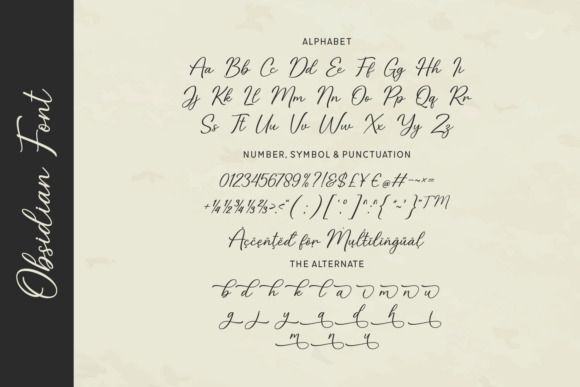 Obsidian Font
ALPHABET
Aa Bb Cc Dd Ee Ff Gg Hh Ii
Jj Kk Ll Mm Nn Oo Pp Qq Rr
Ss Tt Uu Vv Ww Xx Yy Zz
NUMBER, SYMBOL & PUNCTUATION
0123456789%?!&$£¥€@#-~×=
+¼½¾⅓⅔>.<"(;)['°']^:^{"~'}"TM
Àccentèd för Multilingùàl
THE ALTERNATE
b d h k l a o m n u
g j y a d h i
m n y